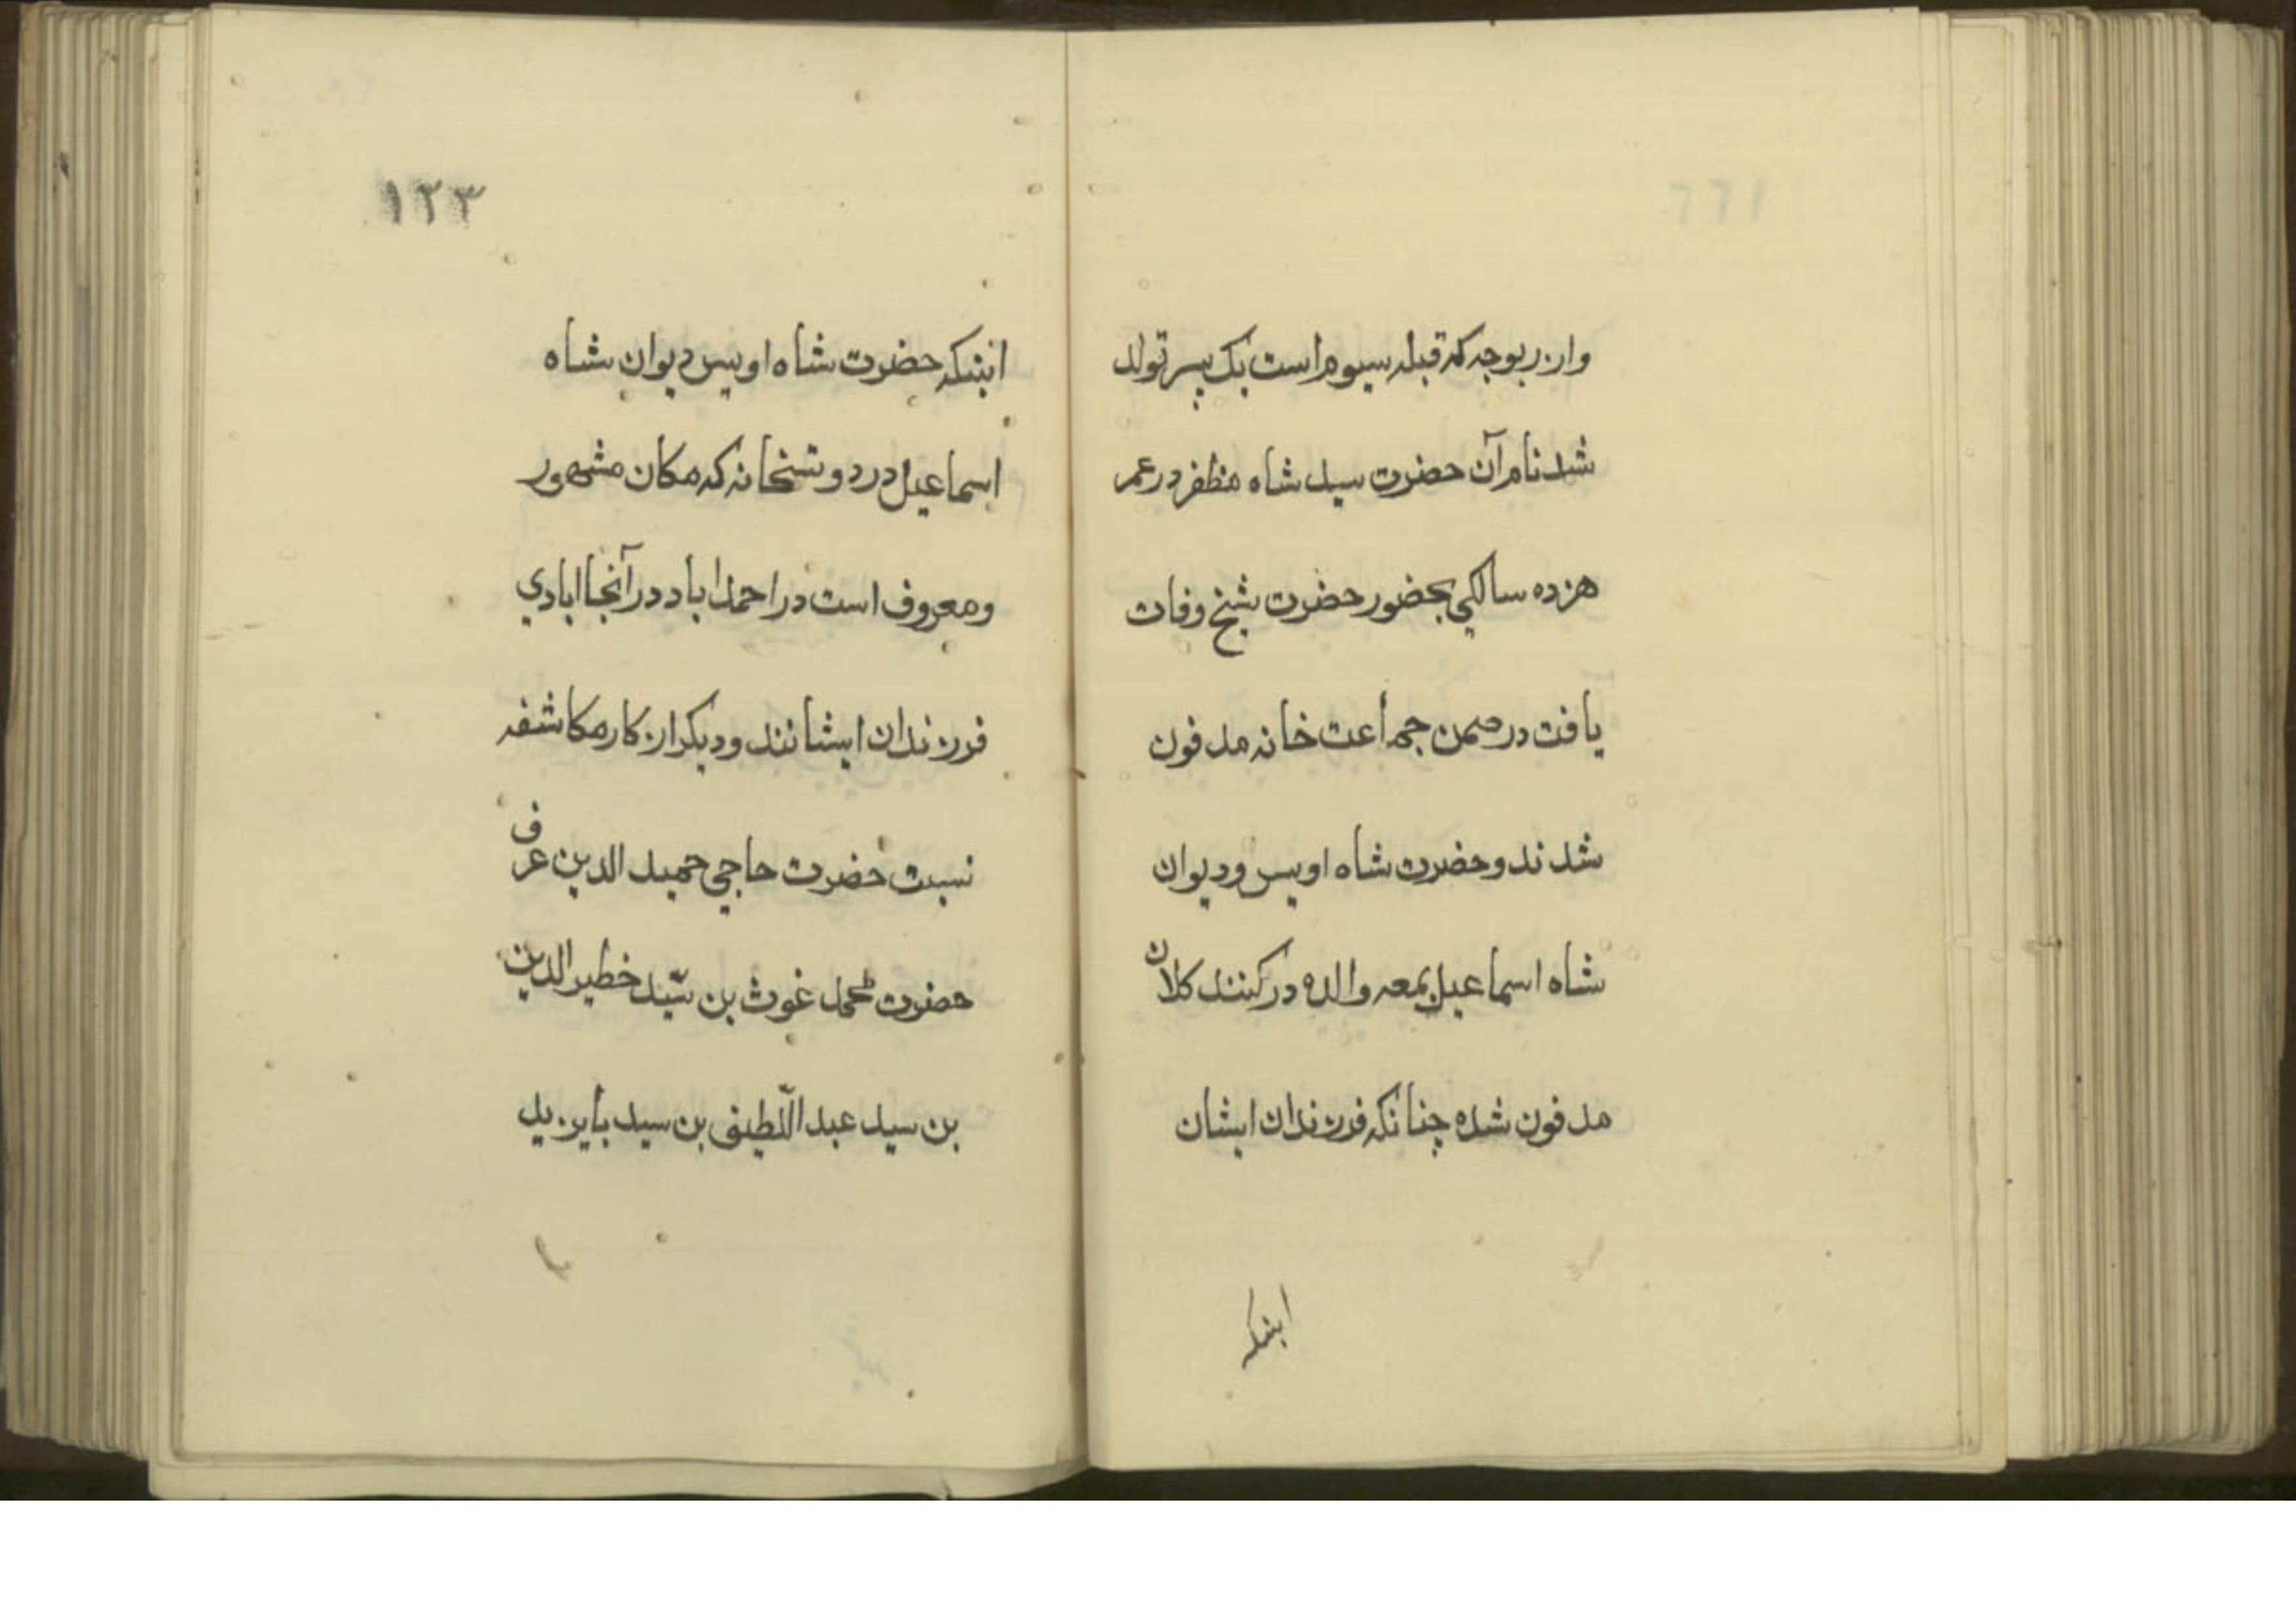 واز زبوجه که قبله سیوم است یک پسر تولد
شد نام آن حضرت سید شاه مظفر در عمر
هزده سالکی بحضور حضرت شیخ وفات
یافت در صحن جماعت خانه مدفون
شدند و حضرت شاه اویس و دیوان
شاه اسماعیل بمعه والده در کنبد کلان
مدفون شده چنانکه فرزندان ایشان
اینکه
١٢٣
اینکه حضرت شاه اویس دیوان شاه
اسماعیل در دولتخانه که مکان مشهور
ومعروف است در احمداباد در آنجا ابادي
فرزندان ایشانند و دیکر از کار مکاشفه
نسبت حضرت حاجي حمید الدین عرف
حضرت محمد غوث بن سیّد خطیر الدین
بن سید عبد اللّطیف بن سید بایزید